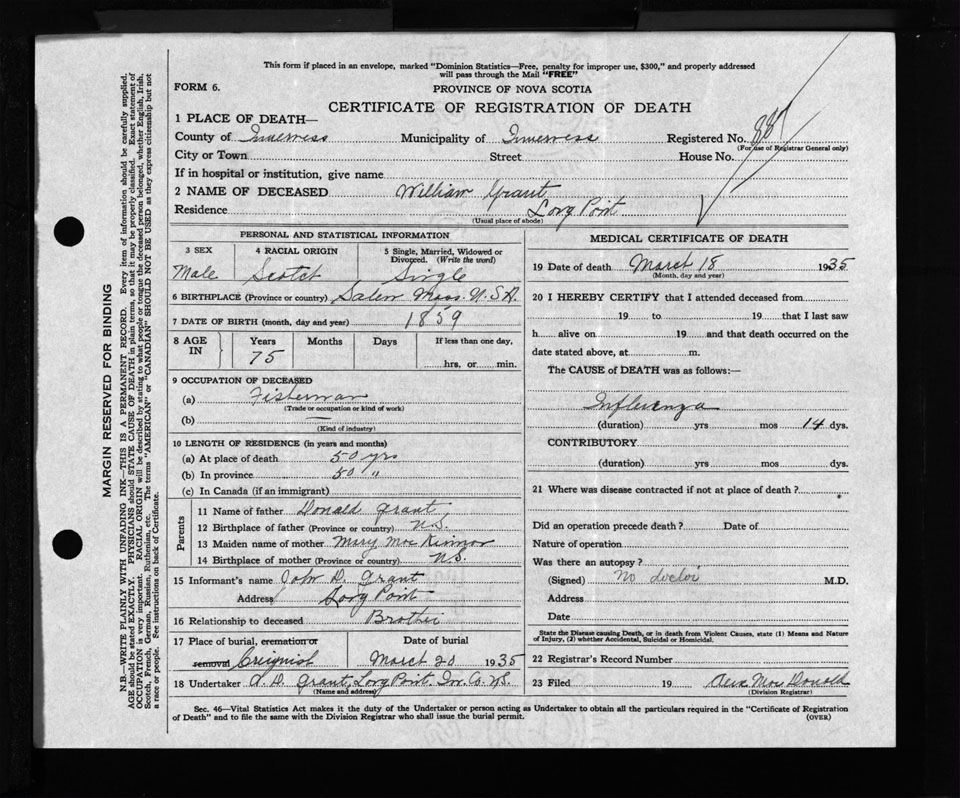 This form if placed in an envelope, marked "Dominion Statistics—Free, penalty for improper use, $300," and properly addressed
will pass through the Mail "FREE"
FORM 6.
PROVINCE OF NOVA SCOTIA
CERTIFICATE OF REGISTRATION OF DEATH
1 PLACE OF DEATH—
County of Inverness Municipality of Inverness Registered No. 887
(For use of Registrar General only)
City or Town Street House No.
If in hospital or institution, give name
2 NAME OF DECEASED William Grant
Residence Long Point
(Usual place of abode)
PERSONAL AND STATISTICAL INFORMATION
3 SEX 4 RACIAL ORIGIN 5 Single, Married, Widowed or
Divorced. (Write the word)
Male Scotch Single
6 BIRTHPLACE (Province or country) Salem Mass. U.S.A.
7 DATE OF BIRTH (month, day and year) 1859
8 AGE IN Years Months Days If less than one day,
75 hrs, or min.
9 OCCUPATION OF DECEASED
(a) Fisherman
(Trade or occupation or kind of work)
(b) —
(Kind of industry)
10 LENGTH OF RESIDENCE (in years and months)
(a) At place of death 50 yrs
(b) In province 50 "
(c) In Canada (if an immigrant)
Parents
11 Name of father Donald Grant
12 Birthplace of father (Province or country) N.S.
13 Maiden name of mother Mary Mac Kinnon
14 Birthplace of mother (Province or country) N.S.
15 Informant's name John D. Grant
Address Long Point
16 Relationship to deceased Brother
17 Place of burial, cremation or Date of burial
removal Creignish March 20 1935
18 Undertaker A. D. Grant, Long Point. Inv. Co. N.S.
(Name and address)
MEDICAL CERTIFICATE OF DEATH
19 Date of death March 18 1935
(Month, day and year)
20 I HEREBY CERTIFY that I attended deceased from
19 to 19 that I last saw
h alive on 19 and that death occurred on the
date stated above, at m.
The CAUSE of DEATH was as follows:—
Influenza
(duration) yrs mos 14 dys.
CONTRIBUTORY
(duration) yrs mos dys.
21 Where was disease contracted if not at place of death?
Did an operation precede death? Date of
Nature of operation
Was there an autopsy?
(Signed) No doctor M.D.
Address
Date
State the Disease causing Death, or in death from Violent Causes, state (1) Means and Nature
of Injury, (2) whether Accidental, Suicidal or Homicidal.
22 Registrar's Record Number
23 Filed 19 Mac Donald
(Division Registrar)
Sec. 46—Vital Statistics Act makes it the duty of the Undertaker or person acting as Undertaker to obtain all the particulars required in the "Certificate of Registration
of Death" and to file the same with the Division Registrar who shall issue the burial permit.
(OVER)
MARGIN RESERVED FOR BINDING
N.B.—WRITE PLAINLY WITH UNFADING INK—THIS IS A PERMANENT RECORD. Every item of information should be carefully supplied.
AGE should be stated EXACTLY. PHYSICIANS should STATE CAUSE OF DEATH in plain terms, so that it may be properly classified. Exact statement of
OCCUPATION is very important. RACIAL ORIGIN will be described by stating to what people or tongue the deceased person belonged, whether English, Irish,
Scotch, French, German, Russian, Ruthenian, etc. The terms "AMERICAN" or "CANADIAN" SHOULD NOT BE USED as they express citizenship but not
a race or people. See instructions on back of Certificate.